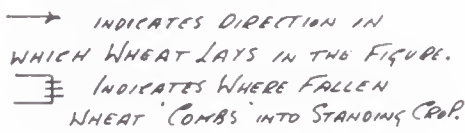 INDICATES DIRECTION IN
WHICH WHEAT LAYS IN THE FIGURE.
INDICATES WHERE FALLEN
WHEAT 'COMBS' INTO STANDING CROP.